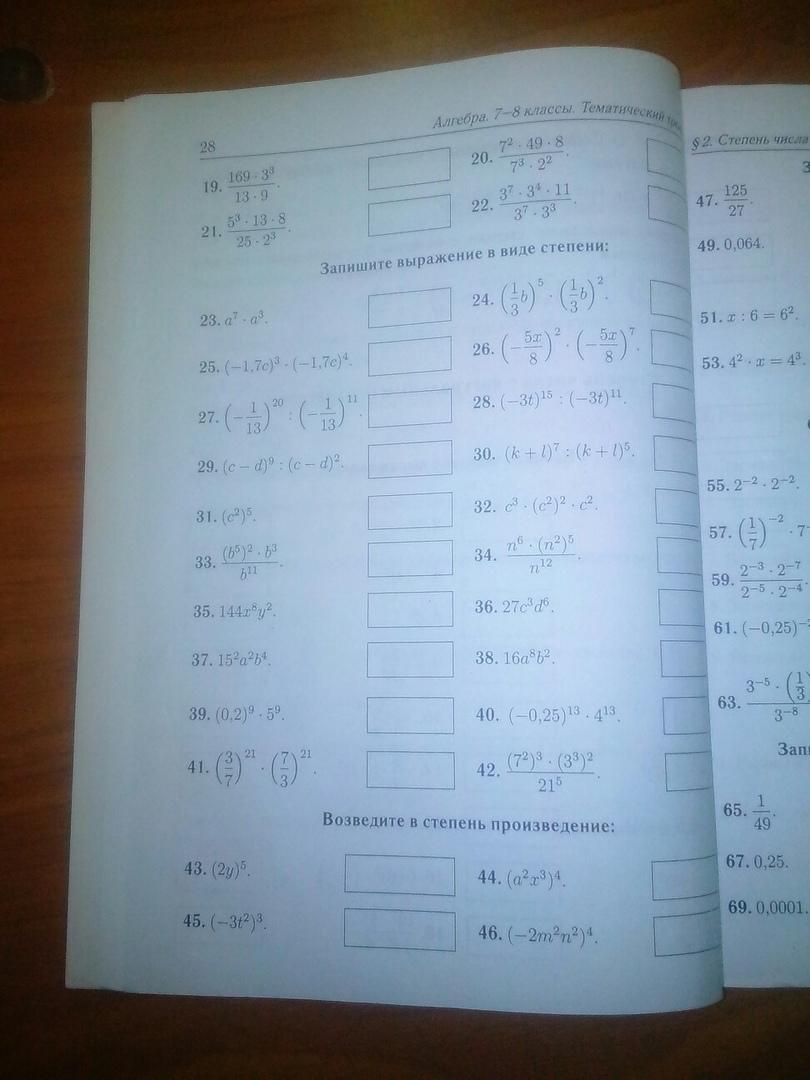 28
Алгебра. 7–8 классы. Тематический
19. (169 · 3³)/(13 · 9).
20. (7² · 49 · 8)/(7³ · 2²).
21. (5³ · 13 · 8)/(25 · 2³).
22. (3⁷ · 3⁴ · 11)/(3⁷ · 3³).
Запишите выражение в виде степени:
23. a⁷ · a³.
24. (1/3 b)⁵ · (1/3 b)².
25. (−1,7c)³ · (−1,7c)⁴.
26. (−5x/8)² · (−5x/8)⁷.
27. (−1/13)²⁰ : (−1/13)¹¹.
28. (−3t)¹⁵ : (−3t)¹¹.
29. (c − d)⁹ : (c − d)².
30. (k + l)⁷ : (k + l)⁵.
31. (c²)⁵.
32. c³ · (c²)² · c².
33. ((b⁵)² · b³)/b¹¹.
34. (n⁶ · (n²)⁵)/n¹².
35. 144x⁸y².
36. 27c³d⁶.
37. 15²a²b⁴.
38. 16a⁸b².
39. (0,2)⁹ · 5⁹.
40. (−0,25)¹³ · 4¹³.
41. (3/7)²¹ · (7/3)²¹.
42. ((7²)³ · (3³)²)/21⁵.
Возведите в степень произведение:
43. (2y)⁵.
44. (a²x³)⁴.
45. (−3t²)³.
46. (−2m²n²)⁴.
§ 2. Степень числа
47. 125/27.
49. 0,064.
51. x : 6 = 6².
53. 4² · x = 4³.
55. 2⁻² · 2⁻².
57. (1/7)⁻² · 7
59. (2⁻³ · 2⁻⁷)/(2⁻⁵ · 2⁻⁴)
61. (−0,25)
63. 3⁻⁵ · (1/3) / 3⁻⁸
65. 1/49.
67. 0,25.
69. 0,0001.